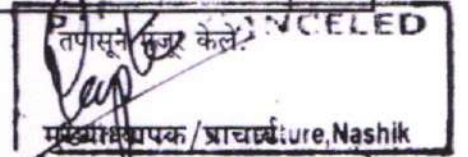 CANCELED
तपासून मंजूर केले.
मुख्याध्यापक / प्राचार्य ture, Nashik